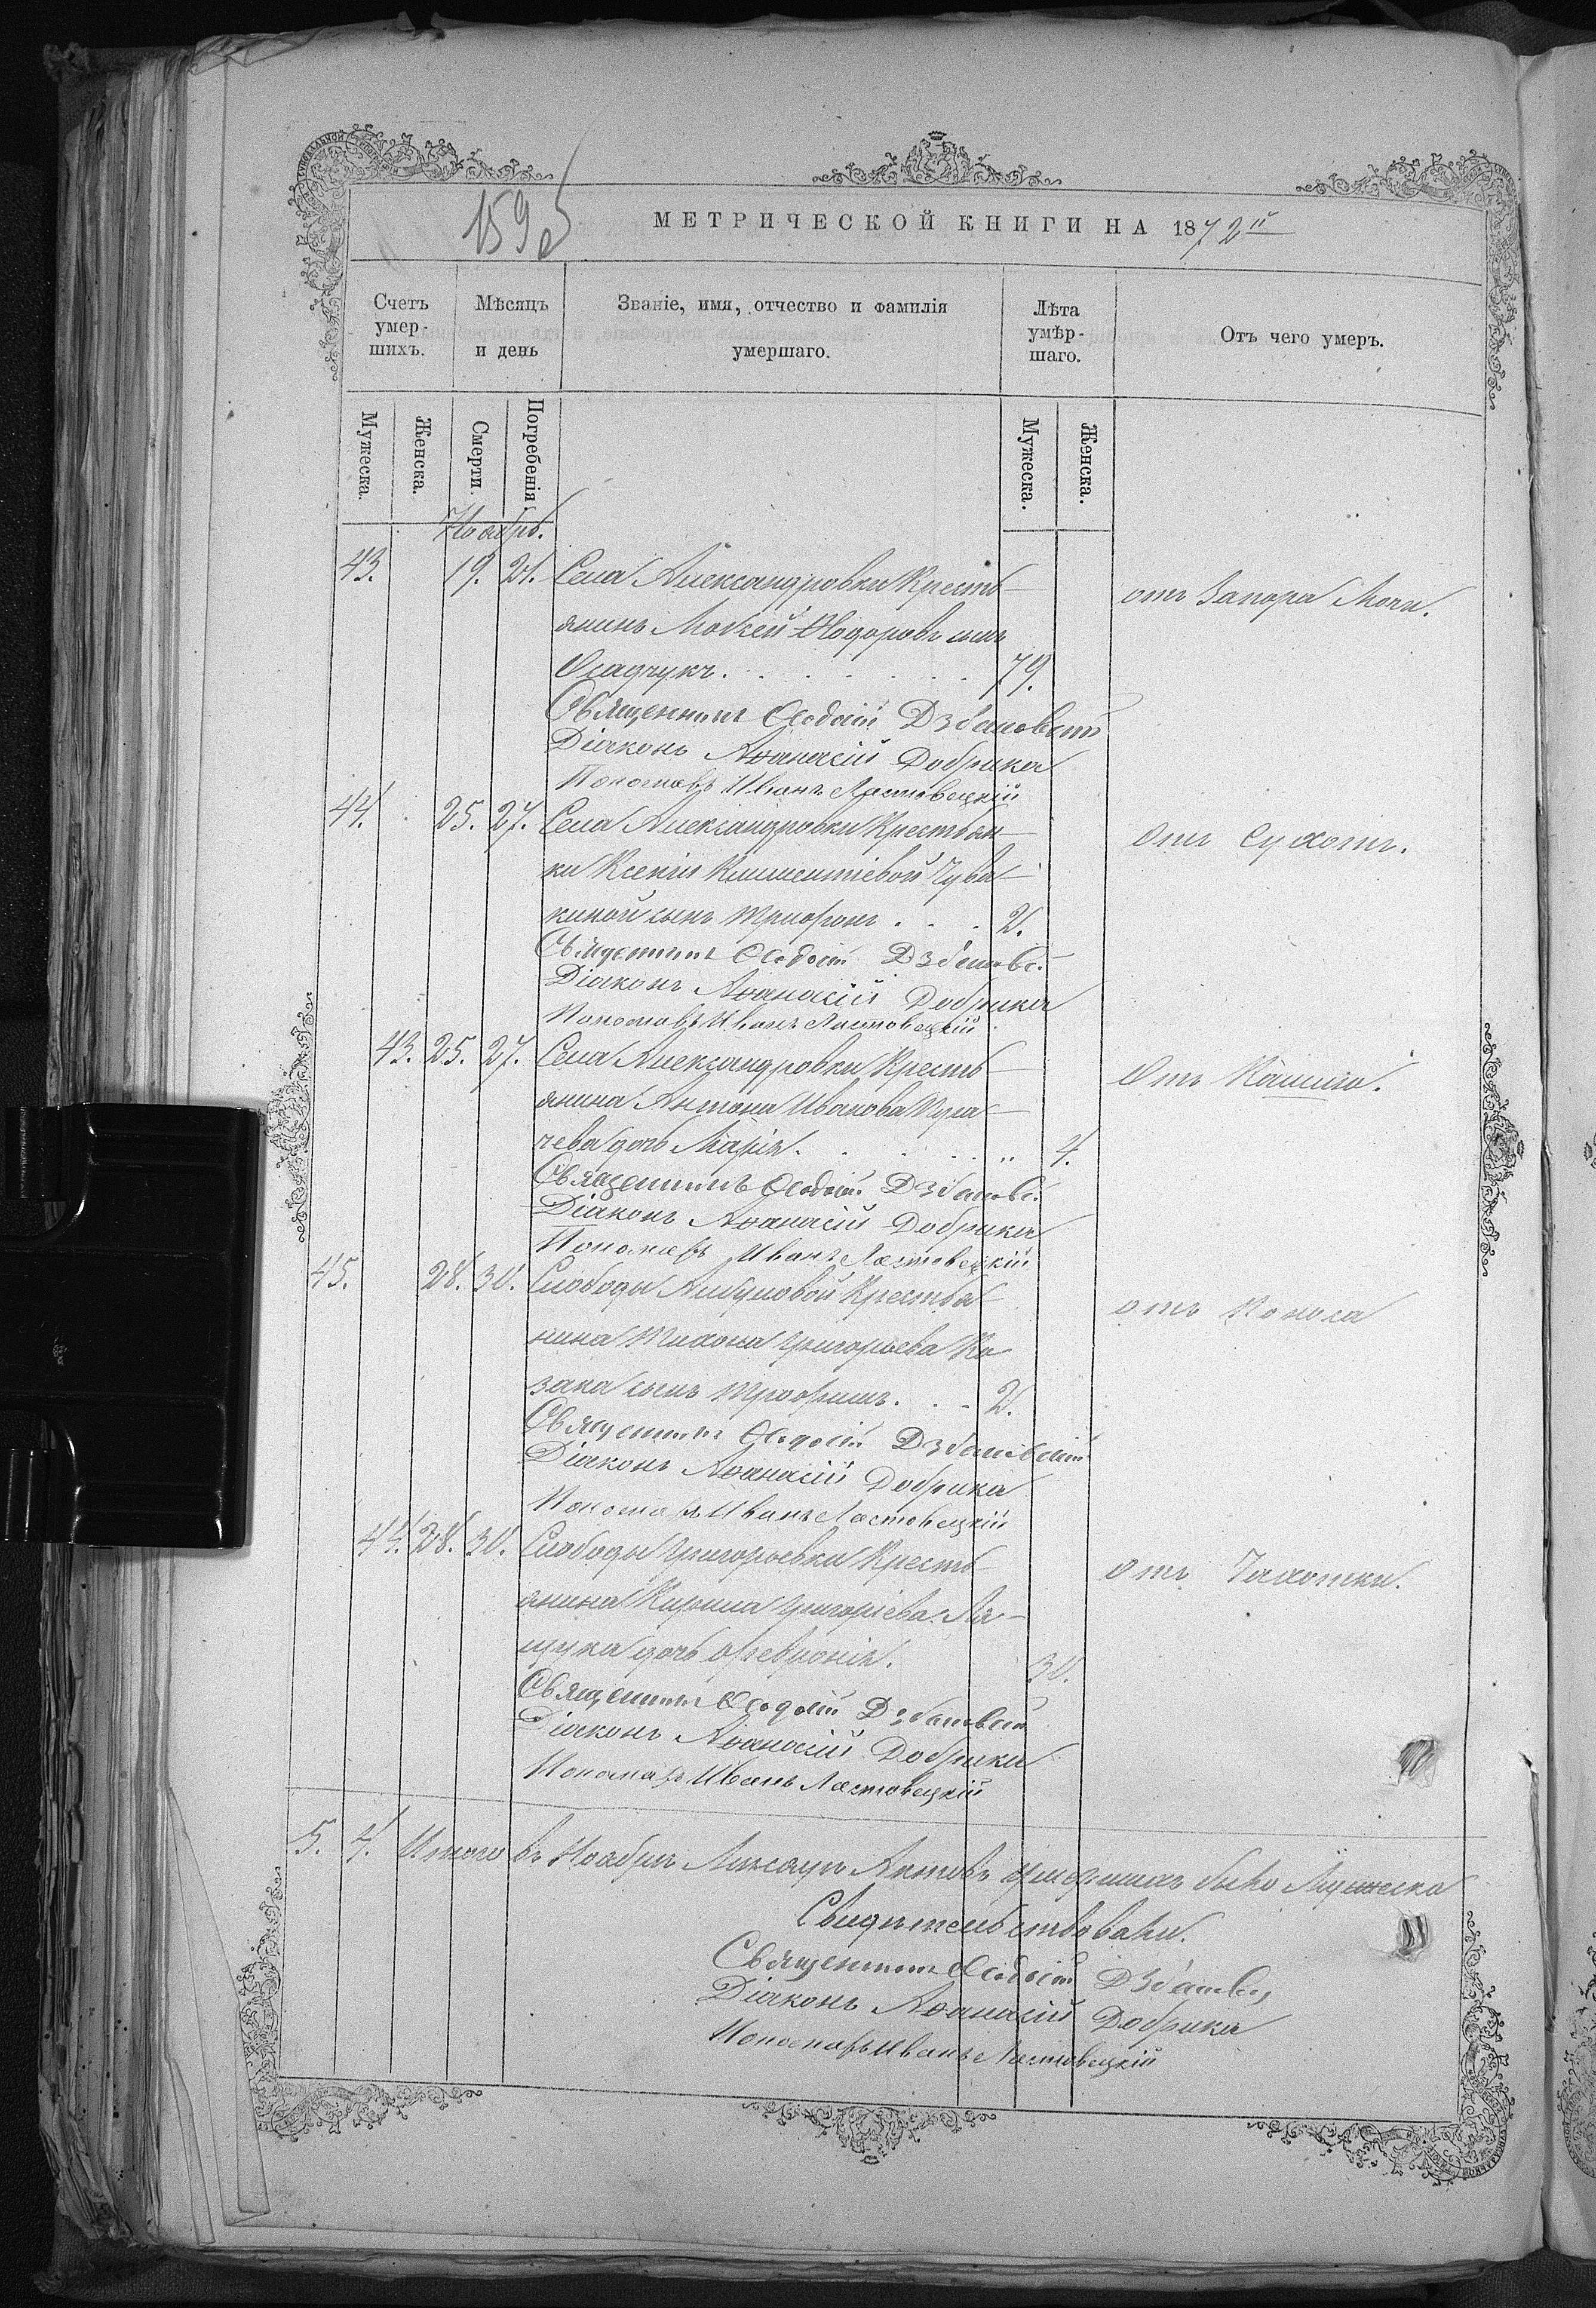 МЕТРИЧЕСКОЙ КНИГИ НА 1872й
Счетъ умер-шихъ.
Мѣсяцъ и день
Званіе, имя, отчество и фамилія умершаго.
Лѣта умѣр-шаго.
Отъ чего умеръ.
Мужеска.
Женска.
Смерти.
Погребенія
Мужеска.
Женска.
Ноябрь.
43. 19. 21. Села Александровки Кресть- отъ Запора Мочи.
янинъ Мокей Ѳеодоровъ сынъ
Осадчукъ. 79.
Священникъ Ѳеодосій Дзбановскій
Діаконъ Аѳанасій Добрика
Пономарь Иванъ Ластовецкій
44. 25. 27. Села Александровки Крестьян- Отъ Сухотъ.
ки Ксеніи Климентіевой Чува-
киной сынъ Трифонъ . . . 2.
Священникъ Ѳеодосій Дзбановс.
Діаконъ Аѳанасій Добрика
Пономарь Иванъ Ластовецкій
43. 25. 27. Села Александровки Кресть- Отъ Кашля.
янина Антона Иванова Пуга-
чева дочь Марія. „ 4.
Священникъ Ѳеодосій Дзбановс.
Діаконъ Аѳанасій Добрика
Пономарь Иванъ Ластовецкій
45. 28. 30. Слободы Крестья- отъ Поноса
нина Тихона Григорьева Ко-
зака сынъ Трофимъ. . . 2.
Священникъ Ѳеодосій Дзбановскій
Діаконъ Аѳанасій Добрика
Пономарь Иванъ Ластовецкій
44. 28. 30. Слободы Григорьевки Кресть- отъ Чахотки.
янина Кирила Григоріева Ля-
щука дочь Февронія. 30.
Священникъ Ѳеодосій Дзбановскій
Діаконъ Аѳанасій Добрика
Пономарь Иванъ Ластовецкій
5. 4. Итого въ Ноябрѣ Мѣсяцѣ Актовъ умершихъ было Мужеска
Свидѣтельствовали.
Священникъ Ѳеодосій Дзбановс
Діаконъ Аѳанасій Добрика
Пономарь Иванъ Ластовецкій